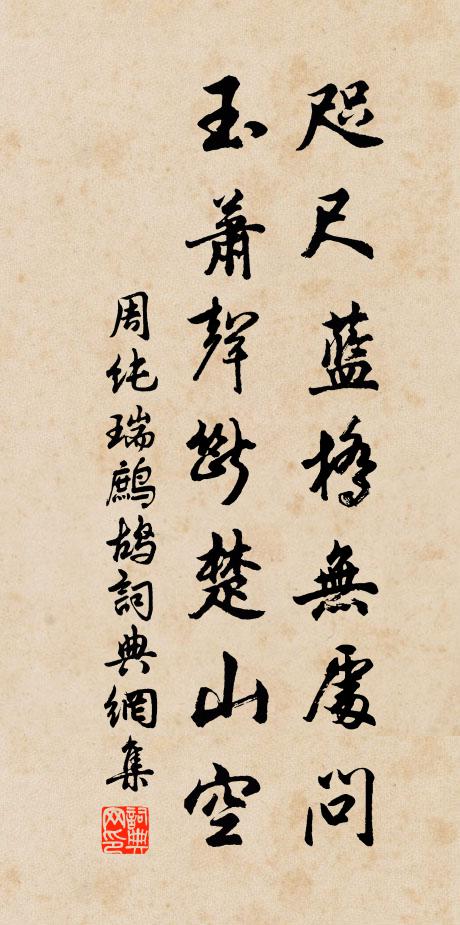 咫尺藍橋無處問
玉蕭聲斷楚山空
周純瑞鷓鴣詞典網集
詞典网印